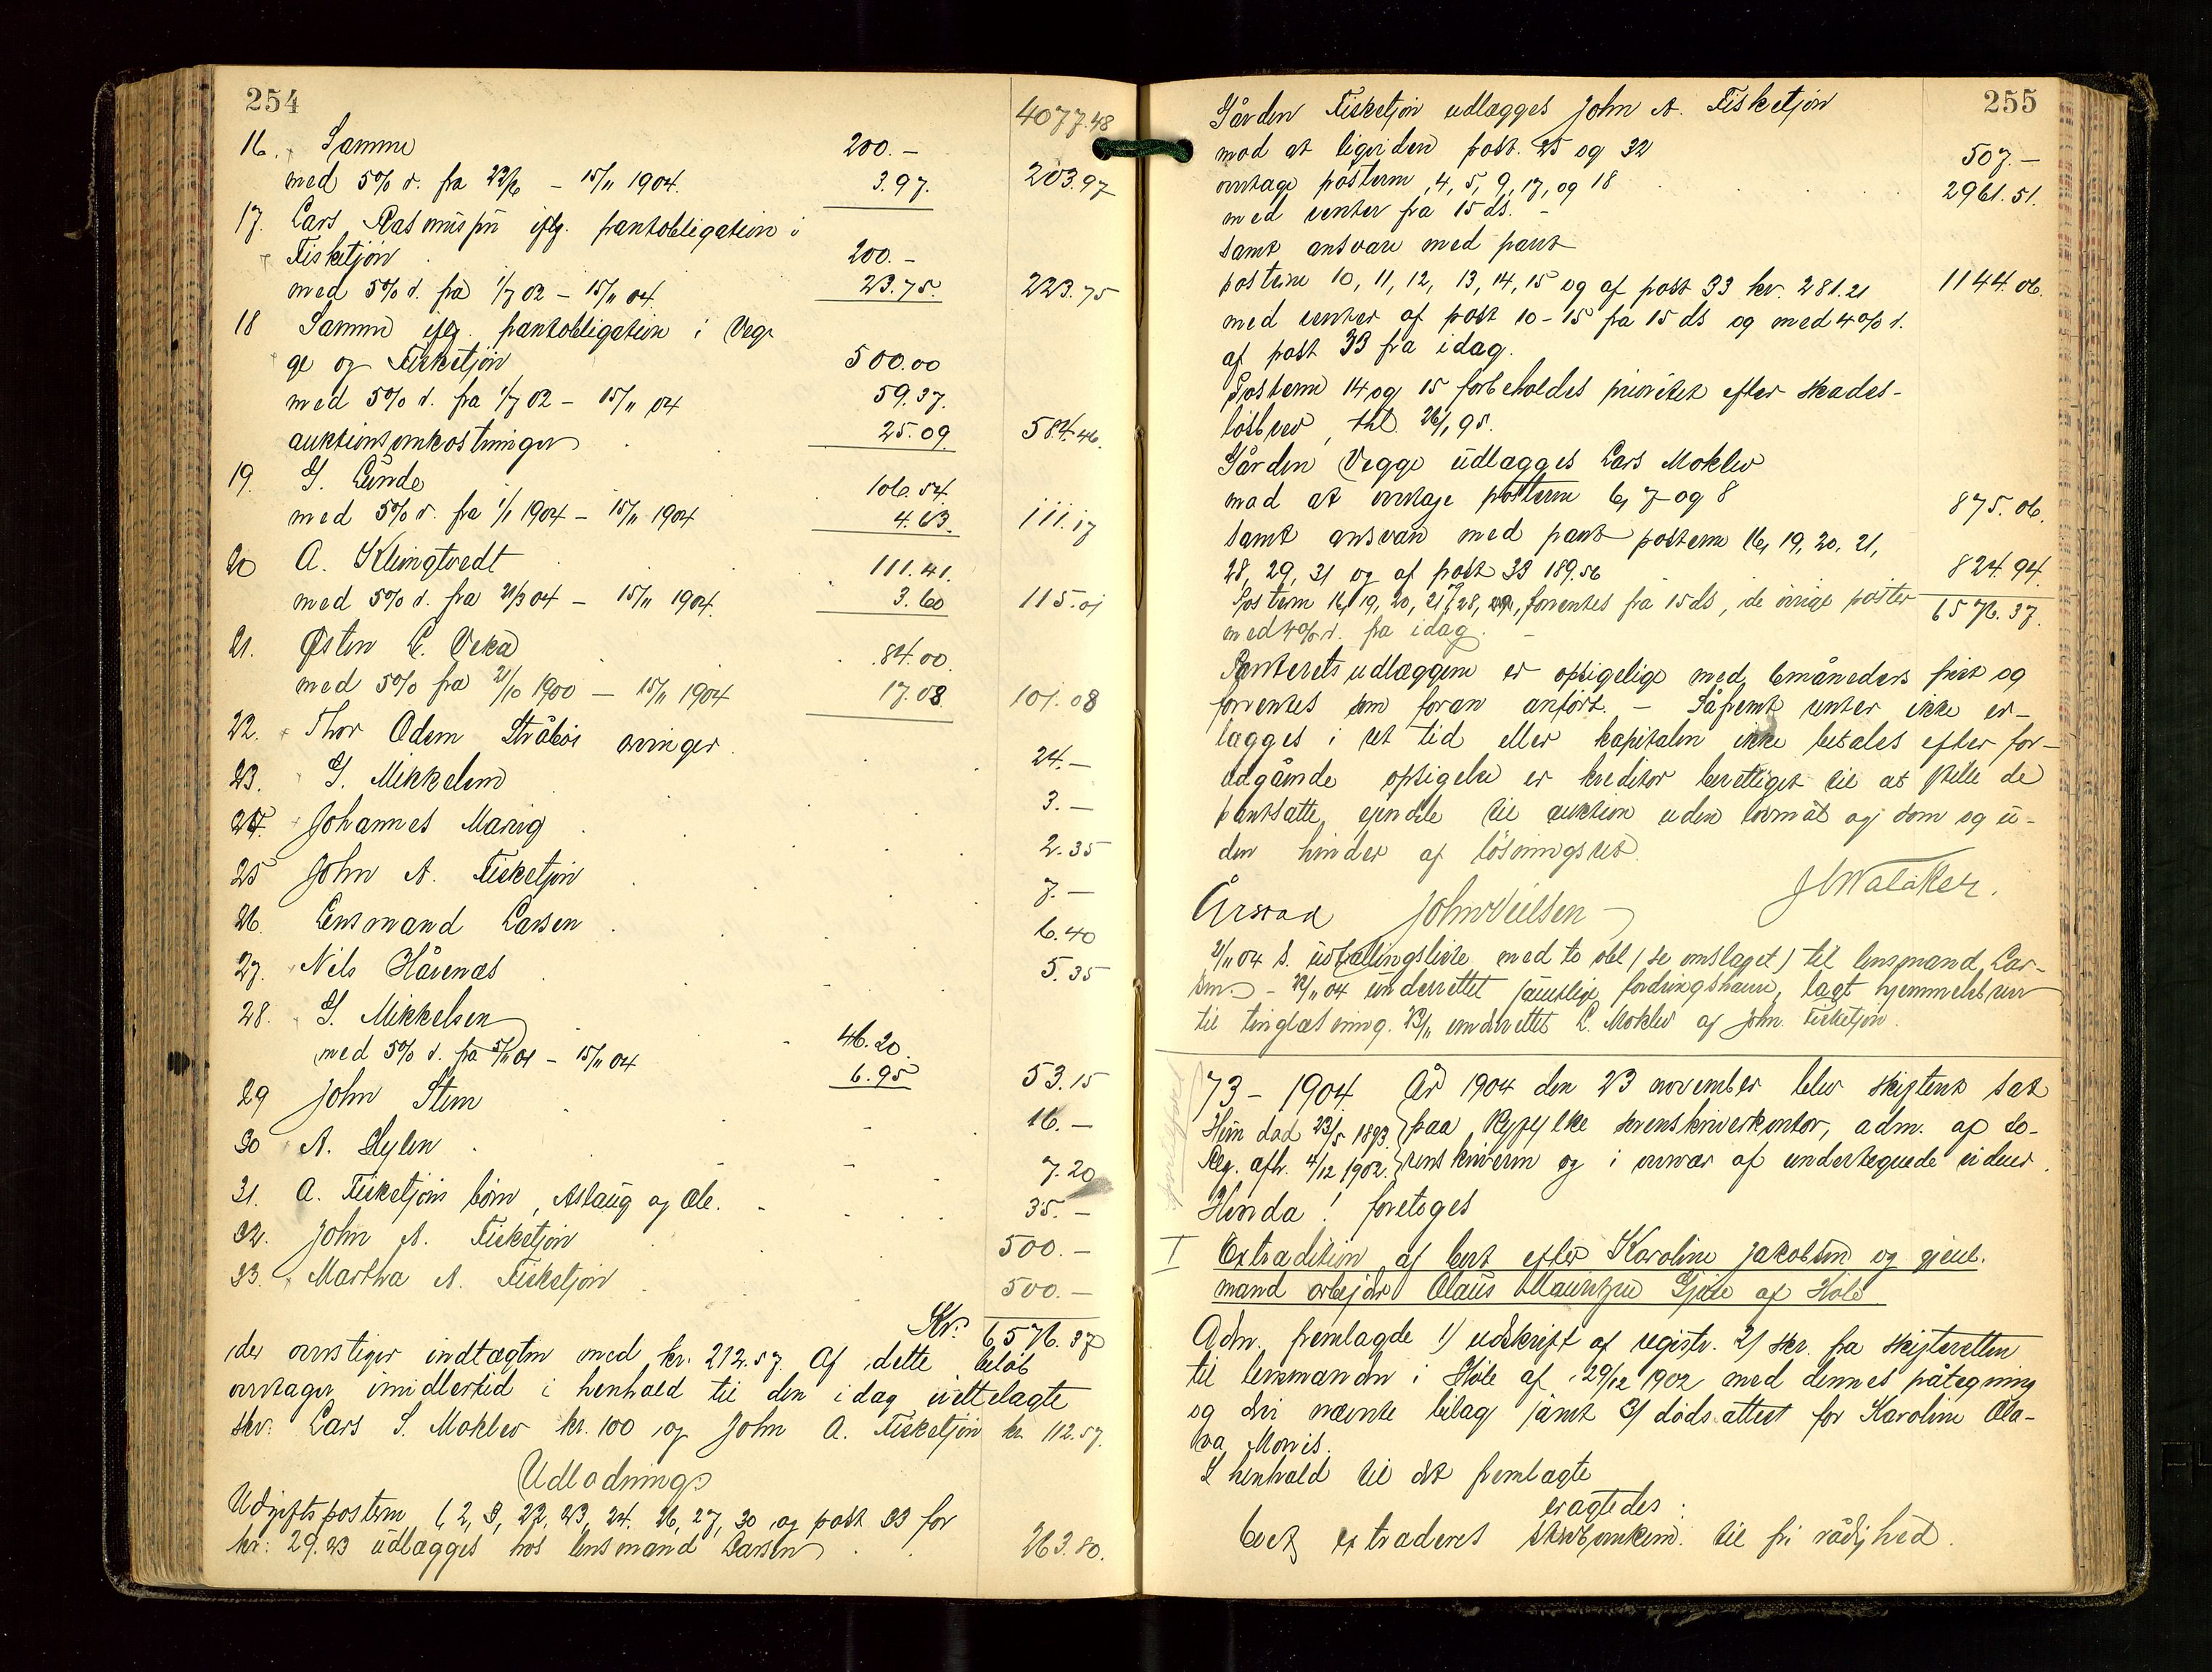 254
4077.48
16. Samme 200.–
med 5% r. fra 22/6 – 15/11 1904. 3.97. 203.97
17. Lars Rasmussen iflg. pantobligation i
Fisketjøn 200.–
med 5% r. fra 1/7 02 – 15/11 04. 23.75. 223.75
18 Samme iflg. pantobligation i Veg-
ge og Fisketjøn 500.00
med 5% r. fra 1/7 02 – 15/11 04 59.37.
auktionsomkostninger 25.09. 584.46.
19. G. Lunde 106.54
med 5% r. fra 1/1 1904 – 15/11 1904 4.63. 111.17
20 A. Klungtvedt 111.41.
med 5% r. fra 21/3 04 – 15/11 1904. 3.60 115.01
21. Østen L. Veka 84.00.
med 5% fra 21/10 1900 – 15/11 1904 17.08 101.08
22. Thor Odem Stråbøs arvinger 24.–
23. G. Mikkelsen 3.–
24. Johannes Marvig 2.35
25 John A. Fisketjøn 7.–
26. Lensmand Larsen 6.40
27. Nils Hårenæs 5.35
28. G. Mikkelsen 46.20
med 5% r. fra 5/11 01 – 15/11 04 6.95 53.15
29 John Stem 16.–
30 A. Hylen 7.20
31. A. Fisketjøns børn, Aslaug og Ole. 35.–
32. John A. Fisketjøn 500.–
33. Martha A. Fisketjøn 500.–
Kr. 6576.37
der overstiger indtægten med kr. 212.57. Af dette beløb
overtager imidlertid i henhold til den idag fremlagte
skr. Lars S. Mokleiv kr. 100 og John A. Fisketjøn kr. 112.57.
Udlodning:
Udgiftsposterne 1, 2, 3, 22, 23, 24, 26, 27, 30 og post 33 for
kr. 29.23 udlægges hos lensmand Larsen 263.80.
255
Gården Fisketjøn udlægges John A. Fisketjøn
mod at ligvidere post. 25 og 32 507.–
overtage posterne 4, 5, 9, 17, og 18 2961.51.
med renter fra 15 ds. –
samt ansvare med pant
posterne 10, 11, 12, 13, 14, 15 og af post 33 kr. 281.21 1144.06.
med renter af post 10-15 fra 15 ds og med 4% r.
af post 33 fra idag.
Posterne 14 og 15 forbeholdes prioritet efter skades-
løsbrev, thl. 26/1 95.
Gården Vegge udlægges Lars Mokleiv
mod at overtage posterne 6, 7 og 8 875.06.
samt ansvare med pant posterne 16, 19, 20, 21,
28, 29, 31 og af post 33 189.56 824.94.
Posterne 16, 19, 20, 21, 28, forrentes fra 15 ds, de øvrige poster 6576.37.
med 4% r. fra idag. –
Panteretsudlæggene er opsigelige med 6 måneders frist og
forrentes som foran anført. – Såfremt renter ikke er-
lægges i ret tid eller kapitalen ikke betales efter for-
udgående opsigelse er kreditor berettiget til at stille de
pantsatte ejendele til auktion uden lovmål og dom og u-
den hinder af løsningsret.
Årstad John Nielsen JWalaker.
21/11 04 s. udbetalingsliste med to obl (se omslaget) til lensmand Lar-
sen – 22/11 04 underrettet samtlige fordringshavere, lagt hjemmelsbrev
til tinglæsning. 23/11 underrettet L. Mokleiv og John Fisketjøn.
73 – 1904 År 1904 den 23 november blev skifteret sat
Hun død 23/5 1893 paa Ryfylke sorenskriverkontor, adm. af so-
Reg. afh. 4/12 1902. renskriveren og i overvær af undertegnede vidner.
Hvorda! foretoges
I Extradition af boet efter Karoline Jakobsen og gjenl.
mand arbejder Olaus Mauritzen Gjøse af Høle
Adm. fremlagde 1) udskrift af registr. 2) skr. fra skifteretten
til lensmanden i Høle af 29/12 1902 med dennes påtegning
og dri nævnte bilag samt 3) dødsattest for Karoline Ola-
va Monis.
I henhold til det fremlagte
eragtedes:
Boet extraderes til fri rådighed.